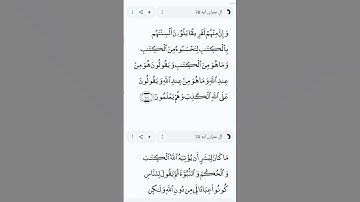 آل عمران آية 78
وَإِنَّ مِنْهُمْ لَفَرِيقًا يَلْوُۥنَ أَلْسِنَتَهُم
بِالْكِتَٰبِ لِتَحْسَبُوهُ مِنَ الْكِتَٰبِ
وَمَا هُوَ مِنَ الْكِتَٰبِ وَيَقُولُونَ هُوَ مِنْ
عِندِ اللَّهِ وَمَا هُوَ مِنْ عِندِ اللَّهِ وَيَقُولُونَ
عَلَى اللَّهِ الْكَذِبَ وَهُمْ يَعْلَمُونَ
مَا كَانَ لِبَشَرٍ أَن يُؤْتِيَهُ اللَّهُ الْكِتَٰبَ
وَالْحُكْمَ وَالنُّبُوَّةَ ثُمَّ يَقُولَ لِلنَّاسِ
كُونُوا۟ عِبَادًا لِّي مِن دُونِ اللَّهِ وَلَٰكِن